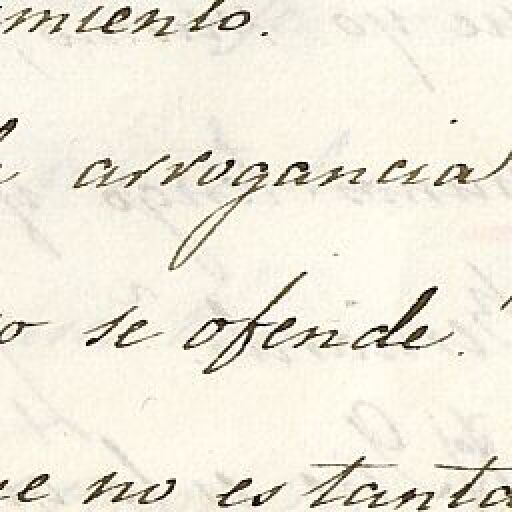 miento.
arrogancia
se ofende.
no es tanta